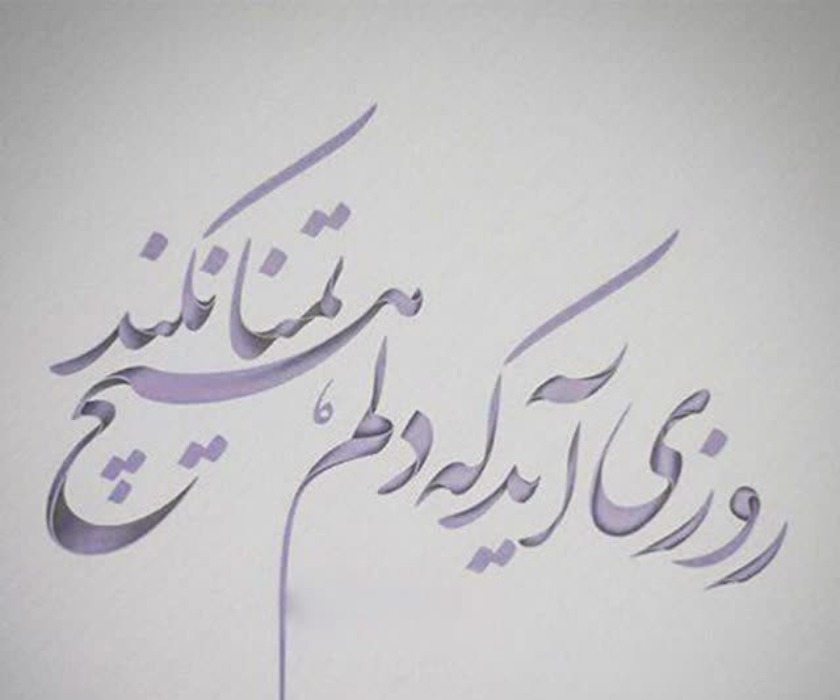 روزی آید که دلم هیچ تمنا نکند